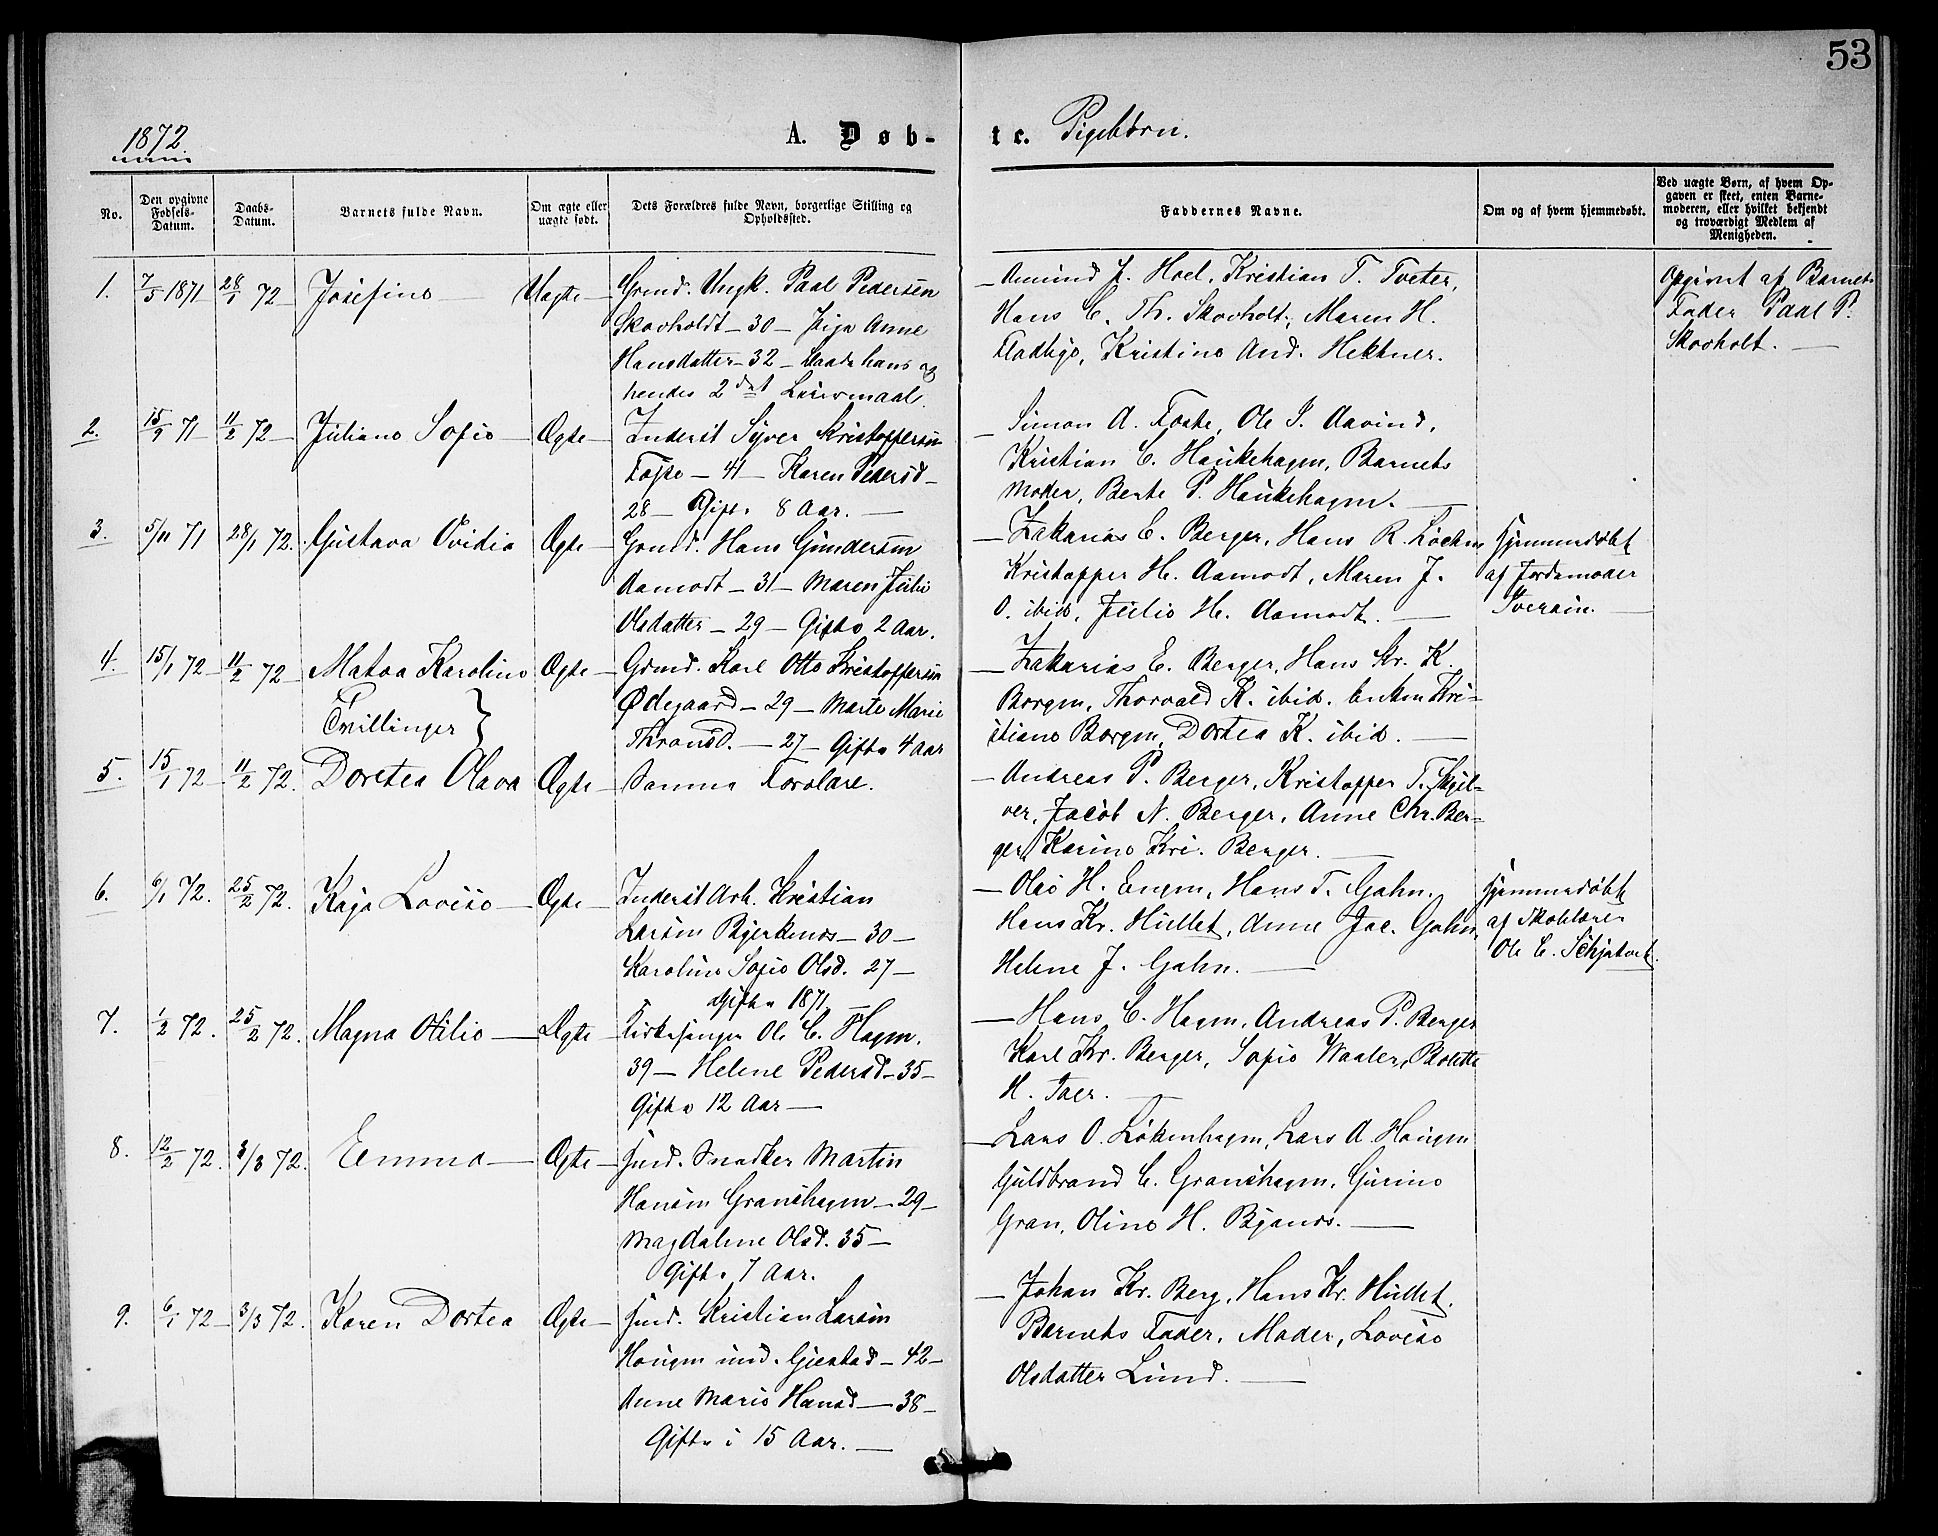 53
1872
A. Døb-
te. Pigebørn.
No.
Den opgivne Fødsels-Datum.
Daabs-Datum.
Barnets fulde Navn.
Om ægte eller uægte født.
Dets Forældres fulde Navn, borgerlige Stilling og Opholdssted.
Faddernes Navne.
Om og af hvem hjemmedøbt.
Ved uægte Børn, af hvem Opgaven er skeet, enten Barnemoderen, eller hvilket bekjendt og troværdigt Medlem af Menigheden.
1. 7/5 1871 28/1 72 Josefine Uægte
Grmd. Ungk. Paal Pedersen
Skovholdt - 30 - Pige Anne
Hansdatter - 32 - baade hans og
hendes 2det Leiermaal.
Amund J. Hoel, Kristian T. Tveter,
Hans C. Th. Skovholt, Maren H.
Fladbye, Kristine And. Hektner.
Opgivet af Barnets
Fader Paal P.
Skovholt.
2. 15/9 71 11/2 72 Juliane Sofie Ægte
Inderst Syver Kristoffersen
Fosse - 41 - Karen Pedersd -
28 - Gifte 8 Aar.
Simon A. Foss, Ole S. Aavind,
Kristian C. Haukehagen, Barnets
Moder, Berte P. Haukehagen.
3. 5/11 71 28/1 72. Gustava Ovidia Ægte
Grmd. Hans Gundersen
Aamodt - 31 - Maren Julie
Olsdatter - 29 - Gifte 2 Aar.
Zakarias E. Berger, Hans R. Løeken
Kristoffer H. Aamodt, Maren J.
O. ibid, Julie H. Aamodt.
Hjemmedøbt
af Jordemoder
Iversen.
4. 15/1 72 11/2 72 Matea Karoline Ægte
Tvillinger }
Grmd. Karl Otto Kristoffersen
Ødegaard - 29 - Marte Marie
Thronsd. - 27 - Gifte 4 Aar
Zakarias E. Berger, Hans Kr. K.
Borgen, Thorvald K. ibid. Enken Kri-
stiane Borgen, Dortea K. ibid.
5. 15/1 72 11/2 72. Dortea Olava Ægte
Samme Forældre.
Andreas P. Berger, Kristoffer T. Skjel-
ver, Jacob N. Berger, Anne Chr. Ber-
ger, Karine Kri. Berger.
6. 6/1 72. 25/2 72. Kaja Lovise Ægte
Inderst Arb. Kristian
Larsen Bjerkenes - 30 -
Karoline Sofie Olsd. 27 -
Gifte 1871
Ole H. Engen, Hans T. Gahn.
Hans Kr. Hullet, Anne Jac. Gahn,
Helene J. Gahn.
Hjemmedøbt
af Skolelærer
Ole E.
7. 1/2 72. 25/2 72. Magna Otilie Ægte
Kirkesanger Ole C. Hagen.
39 - Helene Pedersd - 35 -
Gifte 12 Aar
Hans C. Hagen, Andreas P. Berger
Karl Kr. Berger, Sofie Waaler, Bolette
H. Taer.
8. 12/2 72. 3/3 72. Emma Ægte
Huusd. Snedker Martin
Hansen Granshagen - 29 -
Magdalene Olsd. 35 -
Gifte 7 Aar.
Lars O. Løkenhagen, Lars A. Haugen
Guldbrand C. Granshagen, Gurine
Gran, Oline H. Bjanes.
9. 6/1 72 3/3 72. Karen Dortea Ægte
Huusd. Kristian Larsen
Haugen und. Gjestad - 42 -
Anne Marie Hansd - 38 -
Gifte i 15 Aar.
Johan Kr. Berg, Hans Kr. Hullet.
Barnets Fader, Moder, Lovise
Olsdatter Lund.